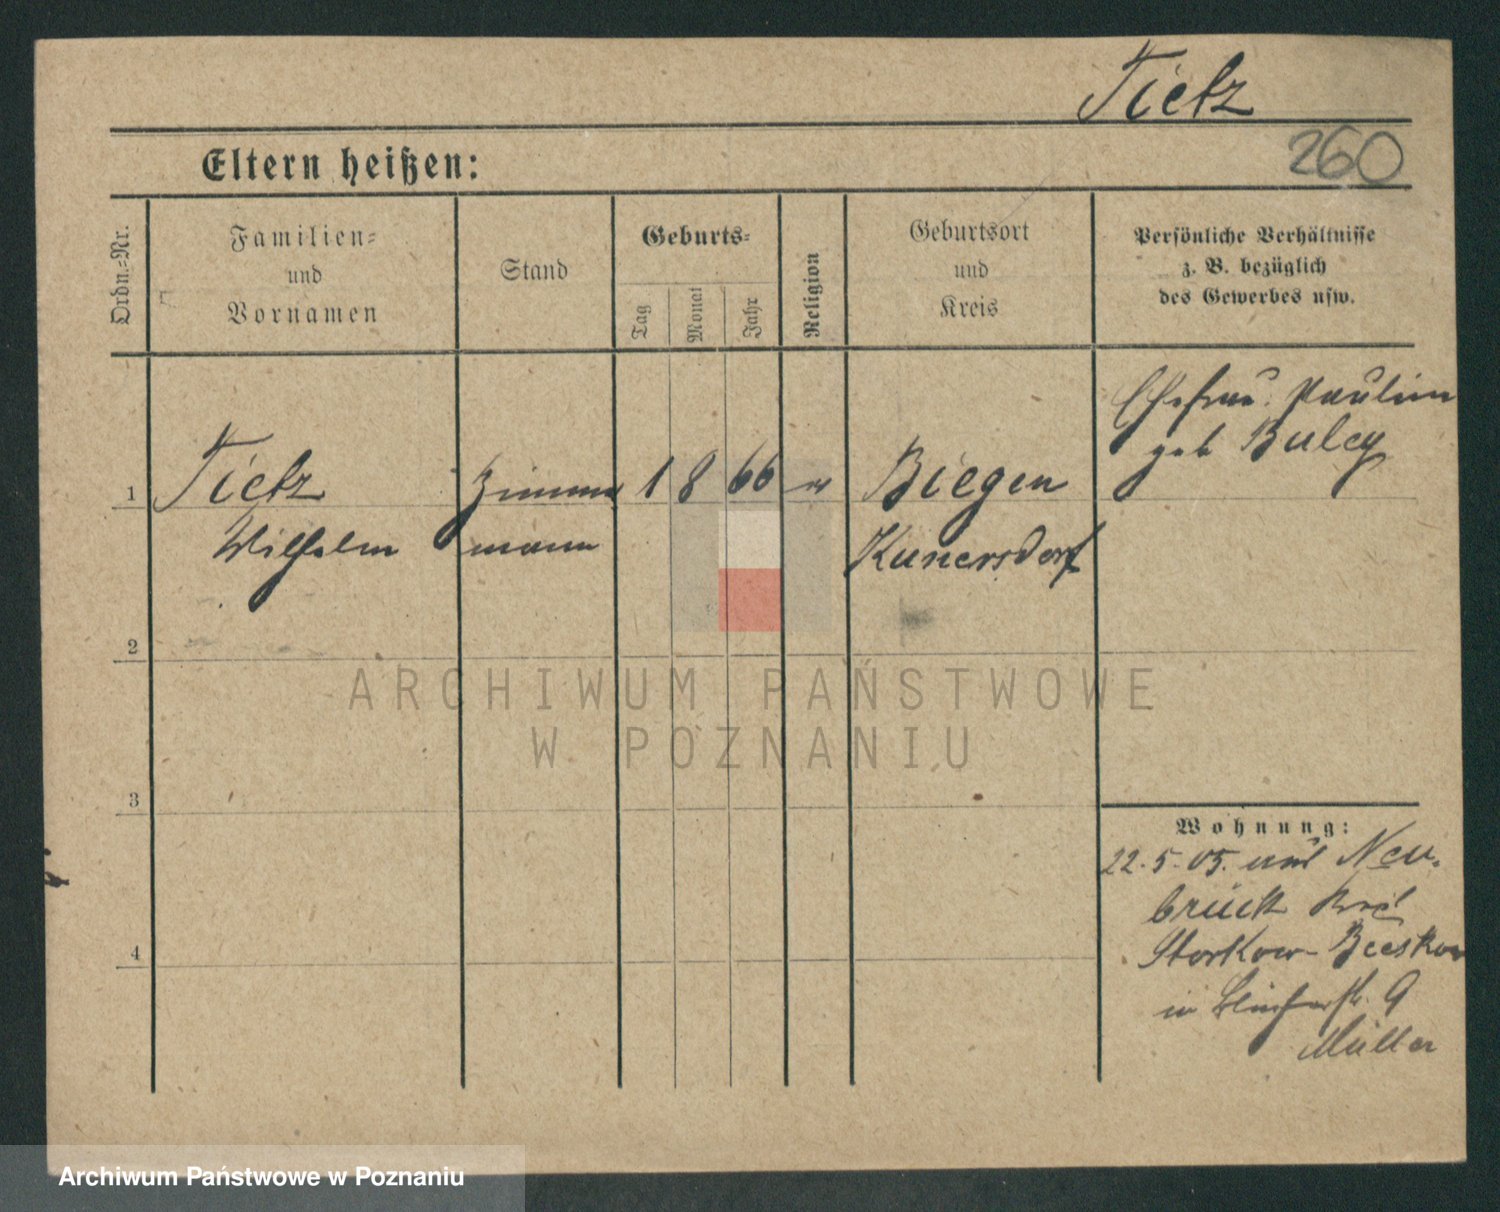 Tietz
260
Eltern heißen:
Ordn.-Nr.
Familien-
und
Vornamen
Stand
Geburts-
Tag
Monat
Jahr
Religion
Geburtsort
und
Kreis
Persönliche Verhältnisse
z. B. bezüglich
des Gewerbes usw.
1
Tietz
Wilhelm
Zimmer
mann
1 8 66
Biegen
Kunersdorf
Ehefrau Paulin
geb
2
3
4
ARCHIWUM PAŃSTWOWE
W POZNANIU
Wohnung:
22.5.05. aus Neu-
brück
Storkow-Beeskow
in 9
Müller
Archiwum Państwowe w Poznaniu